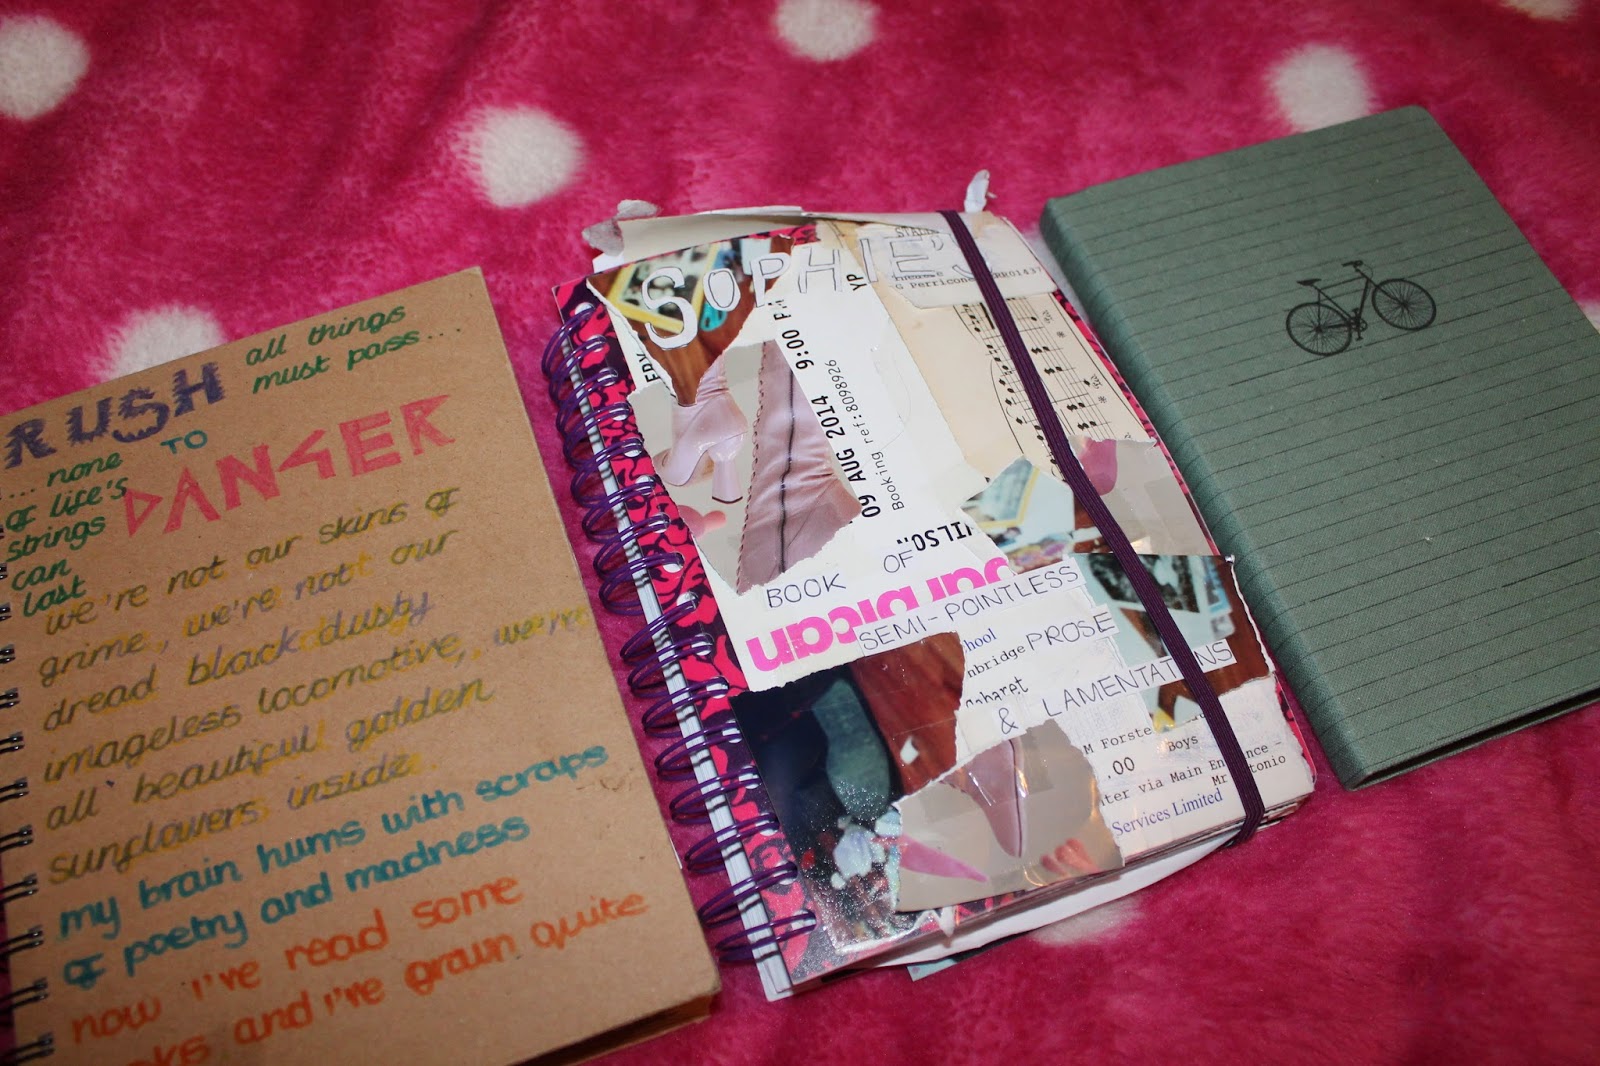 RUSH
TO
DANGER
all things
must pass....
... none
of life's
strings
can
last
we're not our skins of
grime, we're not our
dread black dusty
imageless locomotive, we're
all beautiful golden
sunflowers inside.
my brain hums with scraps
of poetry and madness
now i've read some
and i've grown quite
SOPHIE'S
G Perricone
RR01437
YP
9:00
09 AUG 2014
Booking ref:8098926
WILSON
barbican
BOOK OF
SEMI-POINTLESS
PROSE
& LAMENTATIONS
hool
nbridge
M Forste
Boys
.00
ter via Main Entrance -
Mr
tonio
Services Limited